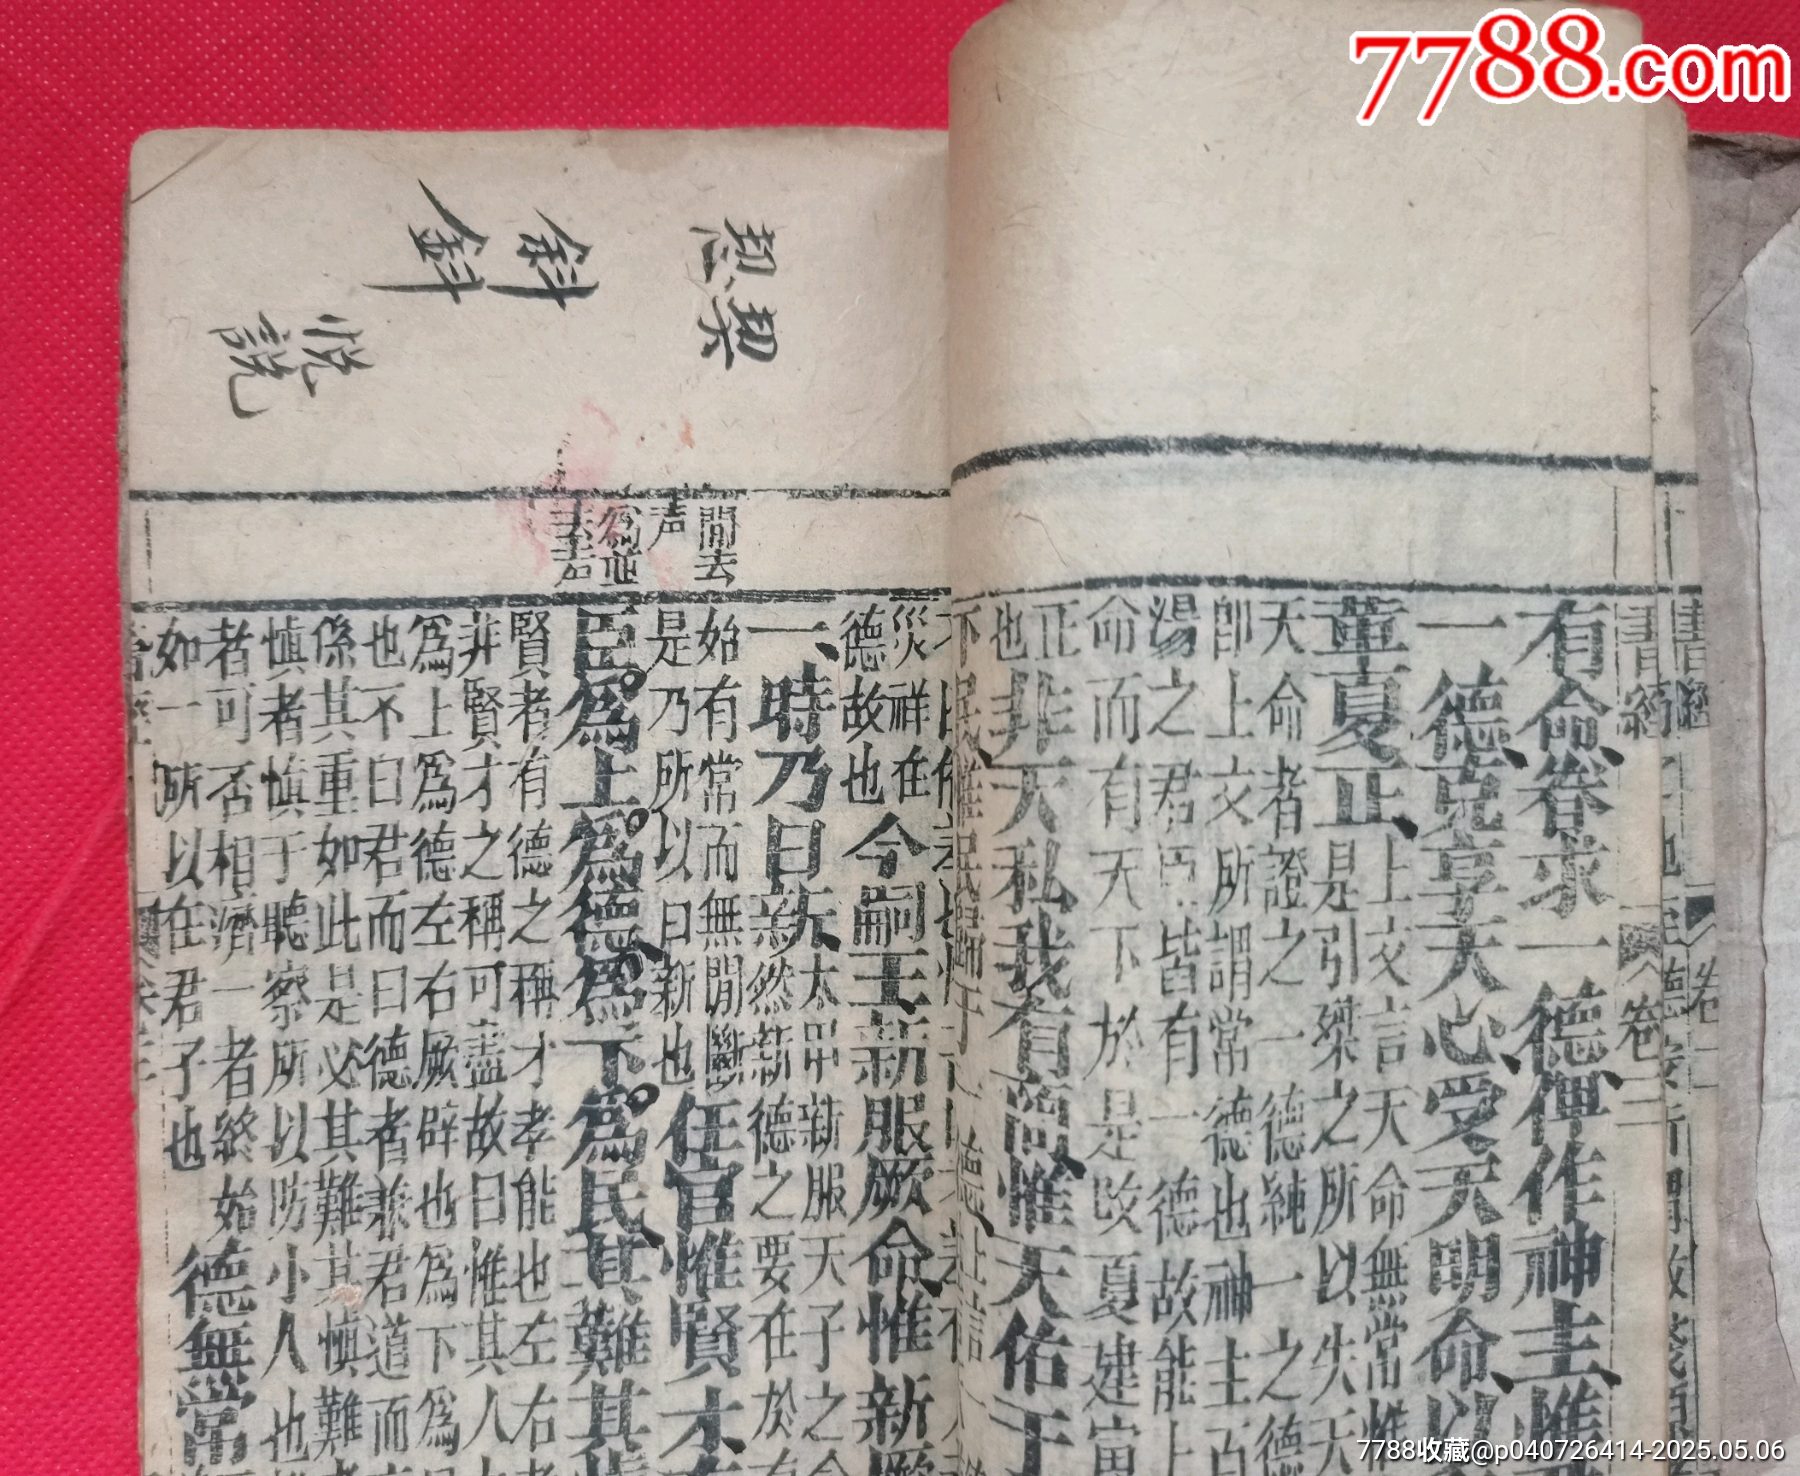 7788.com
有命眷求一德俾作神主惟
一德克享天心受天明命以
上文言天命無常惟
董夏正是引桀之所以失天
天命者證之一德純一之德
卽上文所謂常德也神主百
湯之君臣皆有一德故能上
命而有天下於是改夏建寅
正
也非天私我有商惟天佑于
災祥在
德故也今嗣王新服厥命惟新厥
太甲新服天子之命
一時乃日新然新德之要在於有
始有常而無間斷
是乃所以日新也任官惟賢才
臣爲上爲德爲下爲民其難其
賢者有德之稱才孝能也左右
非賢才之稱可盡故曰惟其人
爲上爲德左右厥辟也爲下爲
也不曰君而曰德者兼君道而
係其重如此是必其難其愼難
愼者愼于聽察所以防小人也
者可否相濟一者終始
如一所以在君子也德無常
間去
声
爲並
去声
恝契
斜斜
悅說
書經
卷三
7788收藏@p040726414-2025.05.06